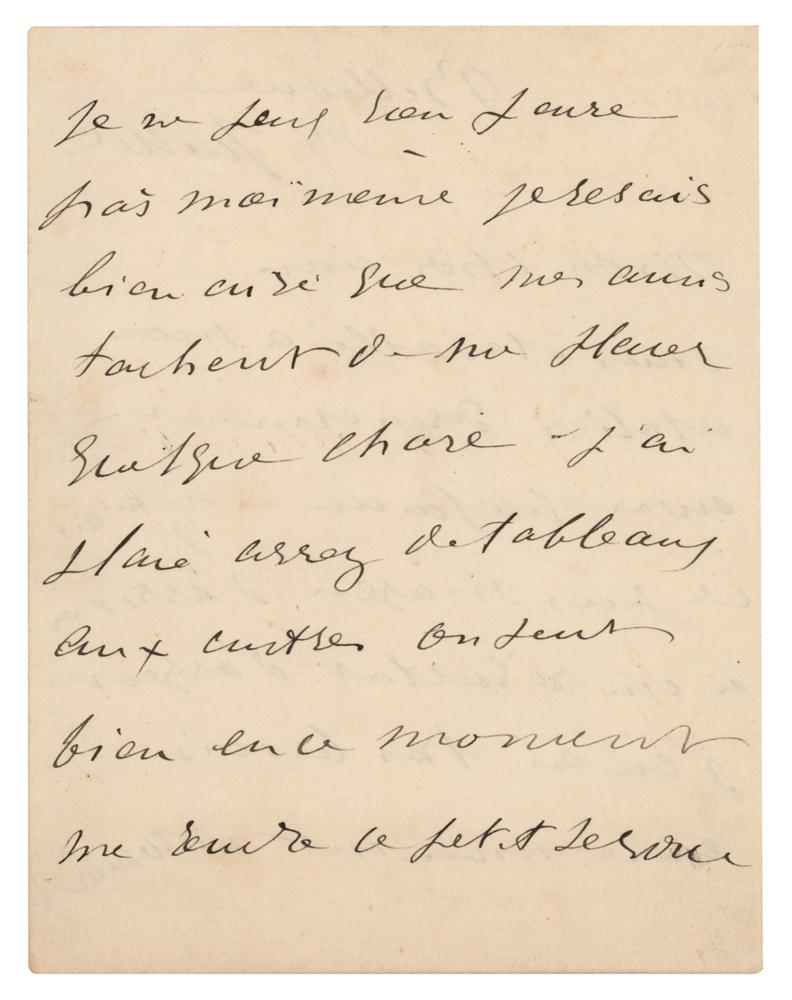 je ne peux rien faire
pas moi même je serais
bien aise que mes amis
tachent de me placer
quelque chose - j'ai
placé assez de tableaux
aux autres on peut
bien en ce moment
me rendre ce petit service